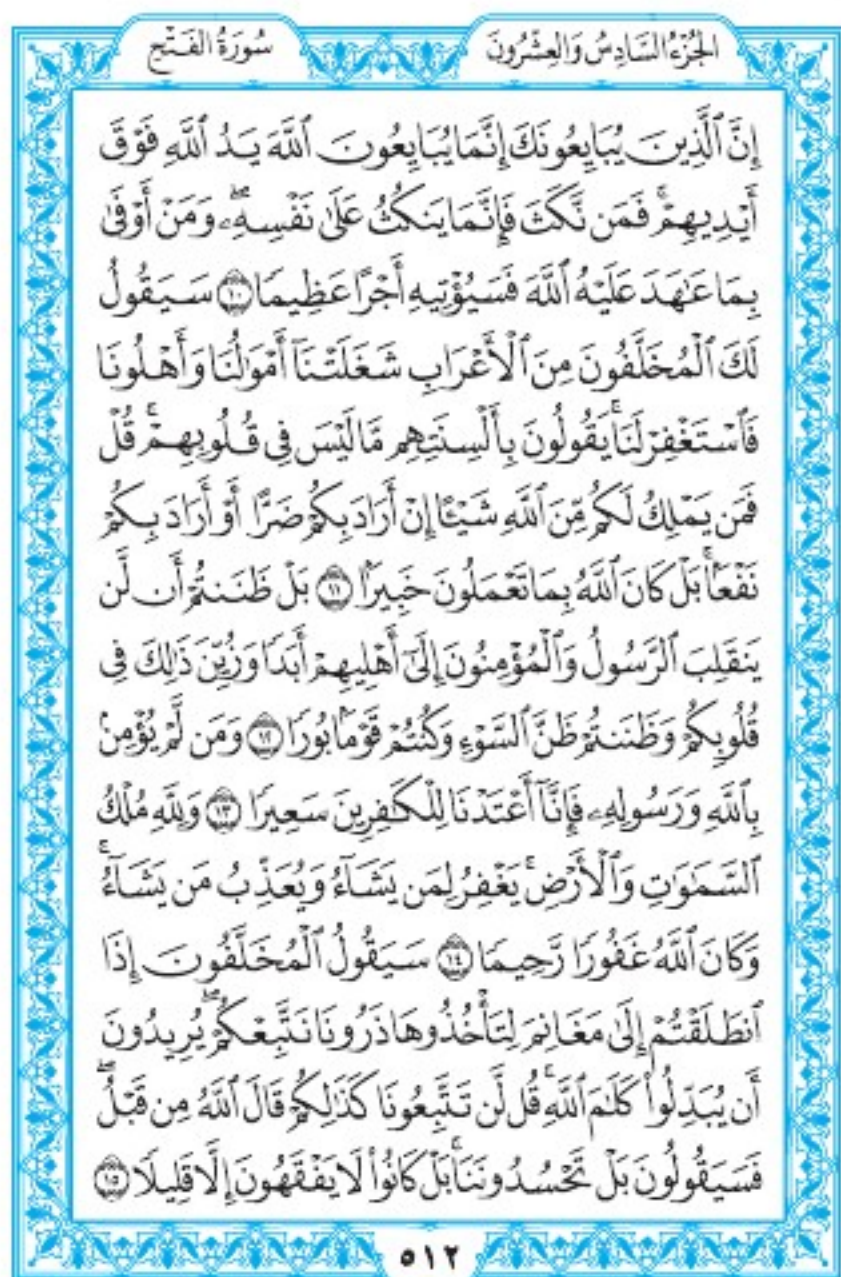 الجُزْءُ السَّادِسُ وَالعِشْرُونَ
سُورَةُ الفَتْحِ
إِنَّ ٱلَّذِينَ يُبَايِعُونَكَ إِنَّمَا يُبَايِعُونَ ٱللَّهَ يَدُ ٱللَّهِ فَوْقَ
أَيْدِيهِمْۚ فَمَن نَّكَثَ فَإِنَّمَا يَنكُثُ عَلَىٰ نَفْسِهِۦۖ وَمَنْ أَوْفَىٰ
بِمَا عَٰهَدَ عَلَيْهُ ٱللَّهَ فَسَيُؤْتِيهِ أَجْرًا عَظِيمًا ۝١٠ سَيَقُولُ
لَكَ ٱلْمُخَلَّفُونَ مِنَ ٱلْأَعْرَابِ شَغَلَتْنَآ أَمْوَٰلُنَا وَأَهْلُونَا
فَٱسْتَغْفِرْ لَنَاۚ يَقُولُونَ بِأَلْسِنَتِهِم مَّا لَيْسَ فِى قُلُوبِهِمْۚ قُلْ
فَمَن يَمْلِكُ لَكُم مِّنَ ٱللَّهِ شَيْـًٔا إِنْ أَرَادَ بِكُمْ ضَرًّا أَوْ أَرَادَ بِكُمْ
نَفْعَۢاۚ بَلْ كَانَ ٱللَّهُ بِمَا تَعْمَلُونَ خَبِيرَۢا ۝١١ بَلْ ظَنَنتُمْ أَن لَّن
يَنقَلِبَ ٱلرَّسُولُ وَٱلْمُؤْمِنُونَ إِلَىٰٓ أَهْلِيهِمْ أَبَدًا وَزُيِّنَ ذَٰلِكَ فِى
قُلُوبِكُمْ وَظَنَنتُمْ ظَنَّ ٱلسَّوْءِ وَكُنتُمْ قَوْمَۢا بُورًا ۝١٢ وَمَن لَّمْ يُؤْمِنۢ
بِٱللَّهِ وَرَسُولِهِۦ فَإِنَّآ أَعْتَدْنَا لِلْكَٰفِرِينَ سَعِيرًا ۝١٣ وَلِلَّهِ مُلْكُ
ٱلسَّمَٰوَٰتِ وَٱلْأَرْضِۚ يَغْفِرُ لِمَن يَشَآءُ وَيُعَذِّبُ مَن يَشَآءُۚ
وَكَانَ ٱللَّهُ غَفُورًا رَّحِيمًا ۝١٤ سَيَقُولُ ٱلْمُخَلَّفُونَ إِذَا
ٱنطَلَقْتُمْ إِلَىٰ مَغَانِمَ لِتَأْخُذُوهَا ذَرُونَا نَتَّبِعْكُمْۖ يُرِيدُونَ
أَن يُبَدِّلُوا۟ كَلَٰمَ ٱللَّهِۚ قُل لَّن تَتَّبِعُونَا كَذَٰلِكُمْ قَالَ ٱللَّهُ مِن قَبْلُۖ
فَسَيَقُولُونَ بَلْ تَحْسُدُونَنَاۚ بَلْ كَانُوا۟ لَا يَفْقَهُونَ إِلَّا قَلِيلًا ۝١٥
٥١٢